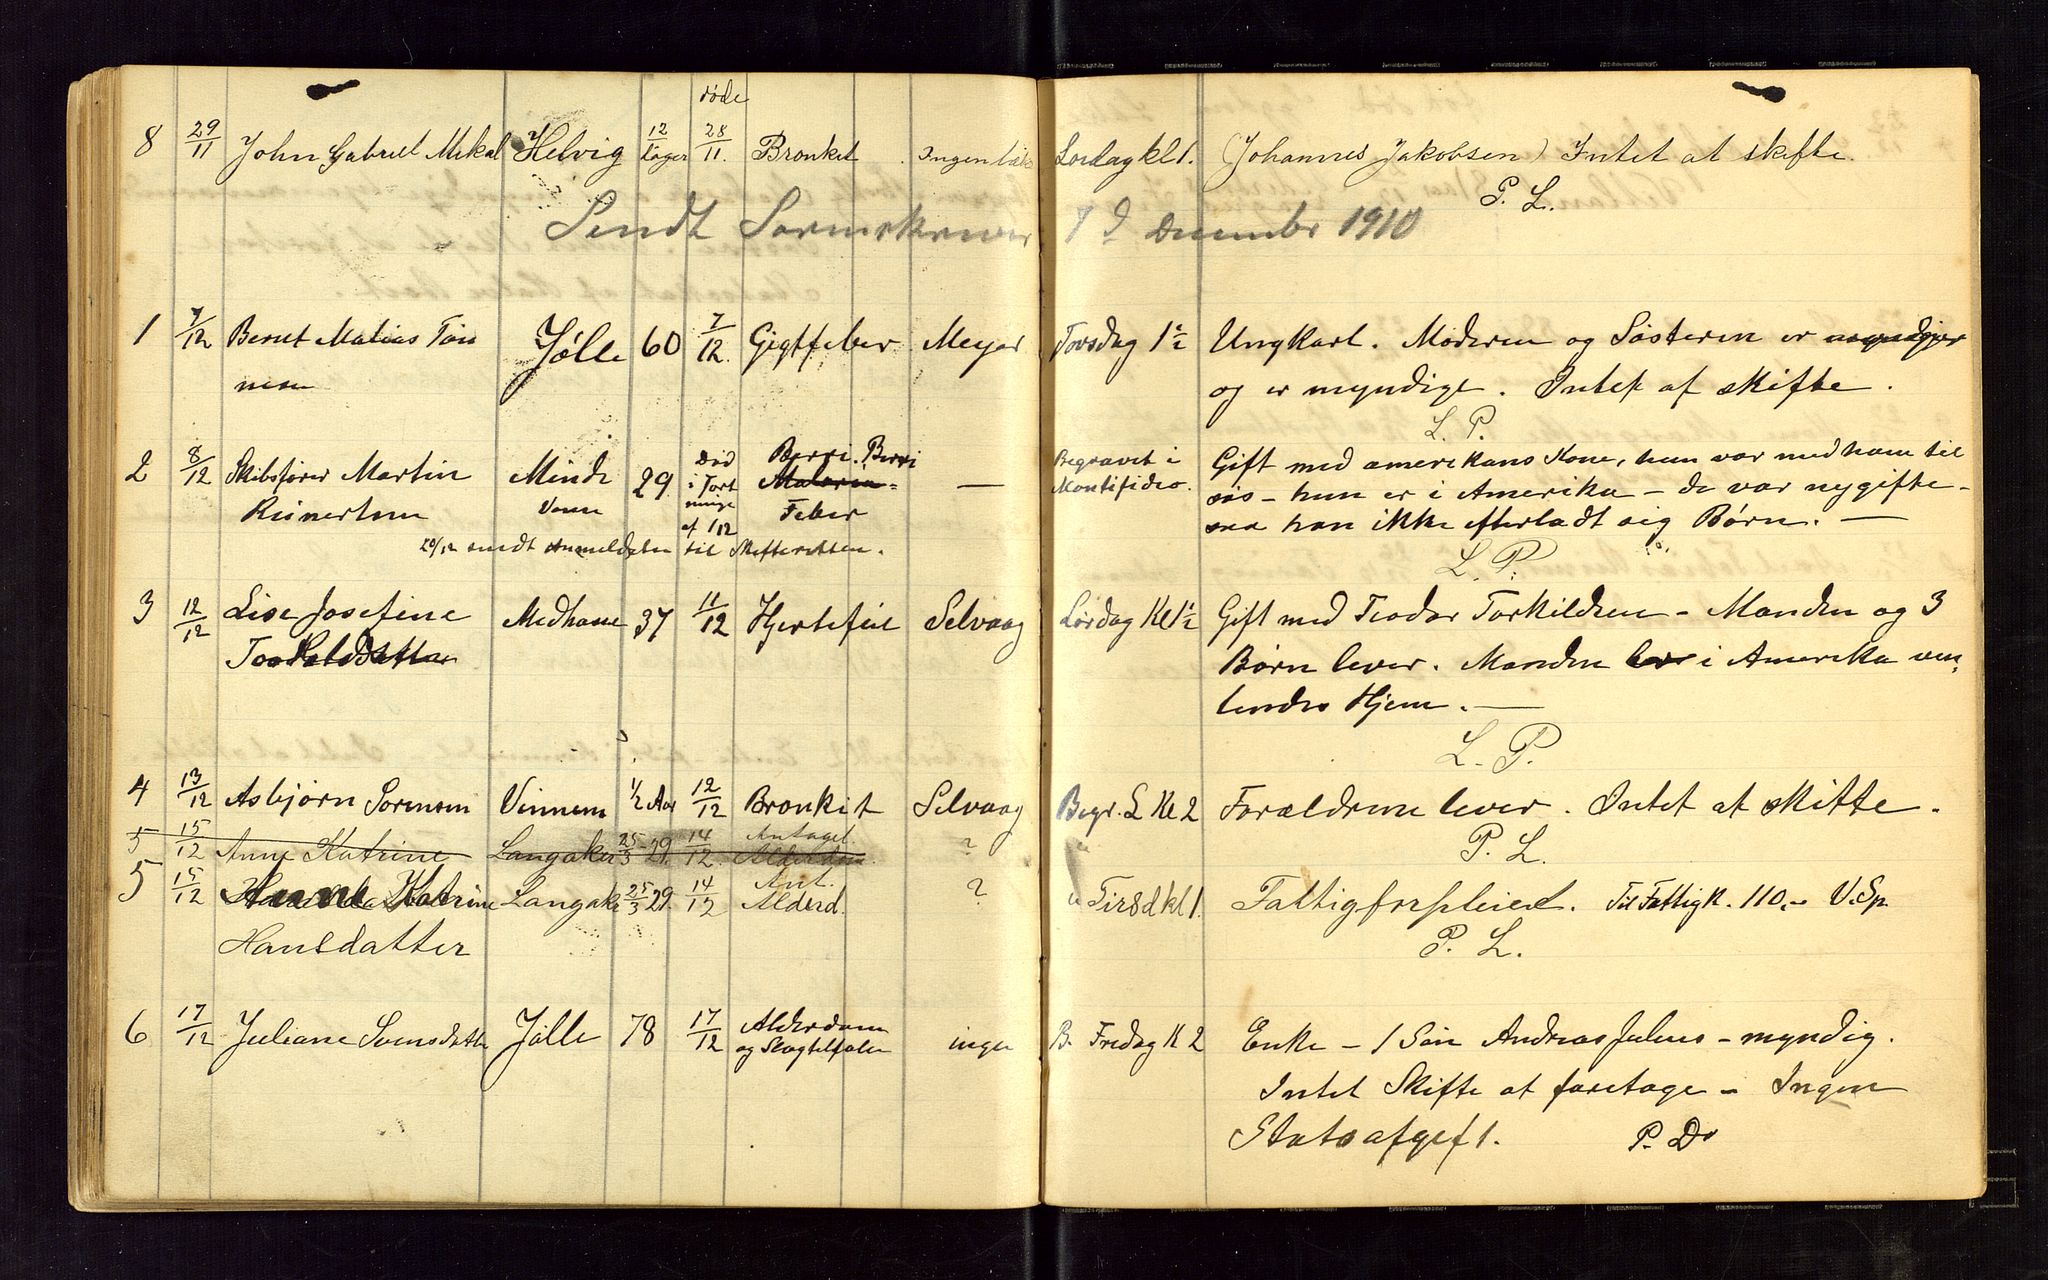 døde
8 29/11 John Gabriel Mikal Helvig 12 dager 28/11. Bronkit. Ingen læke Lørdag kl 1. (Johannes Jakobsen) Intet at skifte.
P. L.
Sendt Sorenskriver 7 d December 1910
1 7/12 Bernt Matias Tøn Jølle 60 7/12. Gigtfeber Meyer Torsdag 1 1/2 Ungkarl. Moderen og Søsteren er myndiger
nesen og er myndige. Intet at skifte.
L. P.
2 8/12 Skibsfører Martin Minde 29. Død Berri-Berri Malaria- — Begravet i Gift med amerikansk Kone, hun var med ham til
Reinertsen Vanse i Fort Feber Montifideo. søs - hun er i Amerika - de var nygifte -
af 1/12 saa han ikke efterladt sig Børn. —
20/12 sendt Anmeldelse til Skifteretten.
L. P.
3 12/12 Lise Josefine Medhaue 37 11/12 Hjertefeil Selvaag Lørdag Kl 1 1/2 Gift med Teodor Torkildsen - Manden og 3
Torkelsdatter Børn lever. Manden lever i Amerika ven-
tendes Hjem. —
L. P.
4 13/12 Asbjørn Sørensen Vinnem 1/2 Aar 12/12 Bronkit Selvaag Begr. L Kl 2 Forældrene lever. Intet at skifte.
5 15/12 Anne Katrine Langaker 25/3 - 29. 14/12. Antagel Alderdom. ? "
P. L.
5 15/12 Anne Katrine Langaker 25/3 29. 14/12 Ant. Alderd. ? " Tirsd kl 1. Fattigforpleiet. Til Fattigk. 110,- V. Sp.
Hansdatter P. L.
6 17/12 Juliane Svensdatter Jølle 78 17/12 Alderdom ingen B. Fredag K 2 Enke - 1 Søn Andreas Julius - myndig.
og Slagtilfælde
Intet Skifte at foretage - Ingen
Statsafgift. P. D.